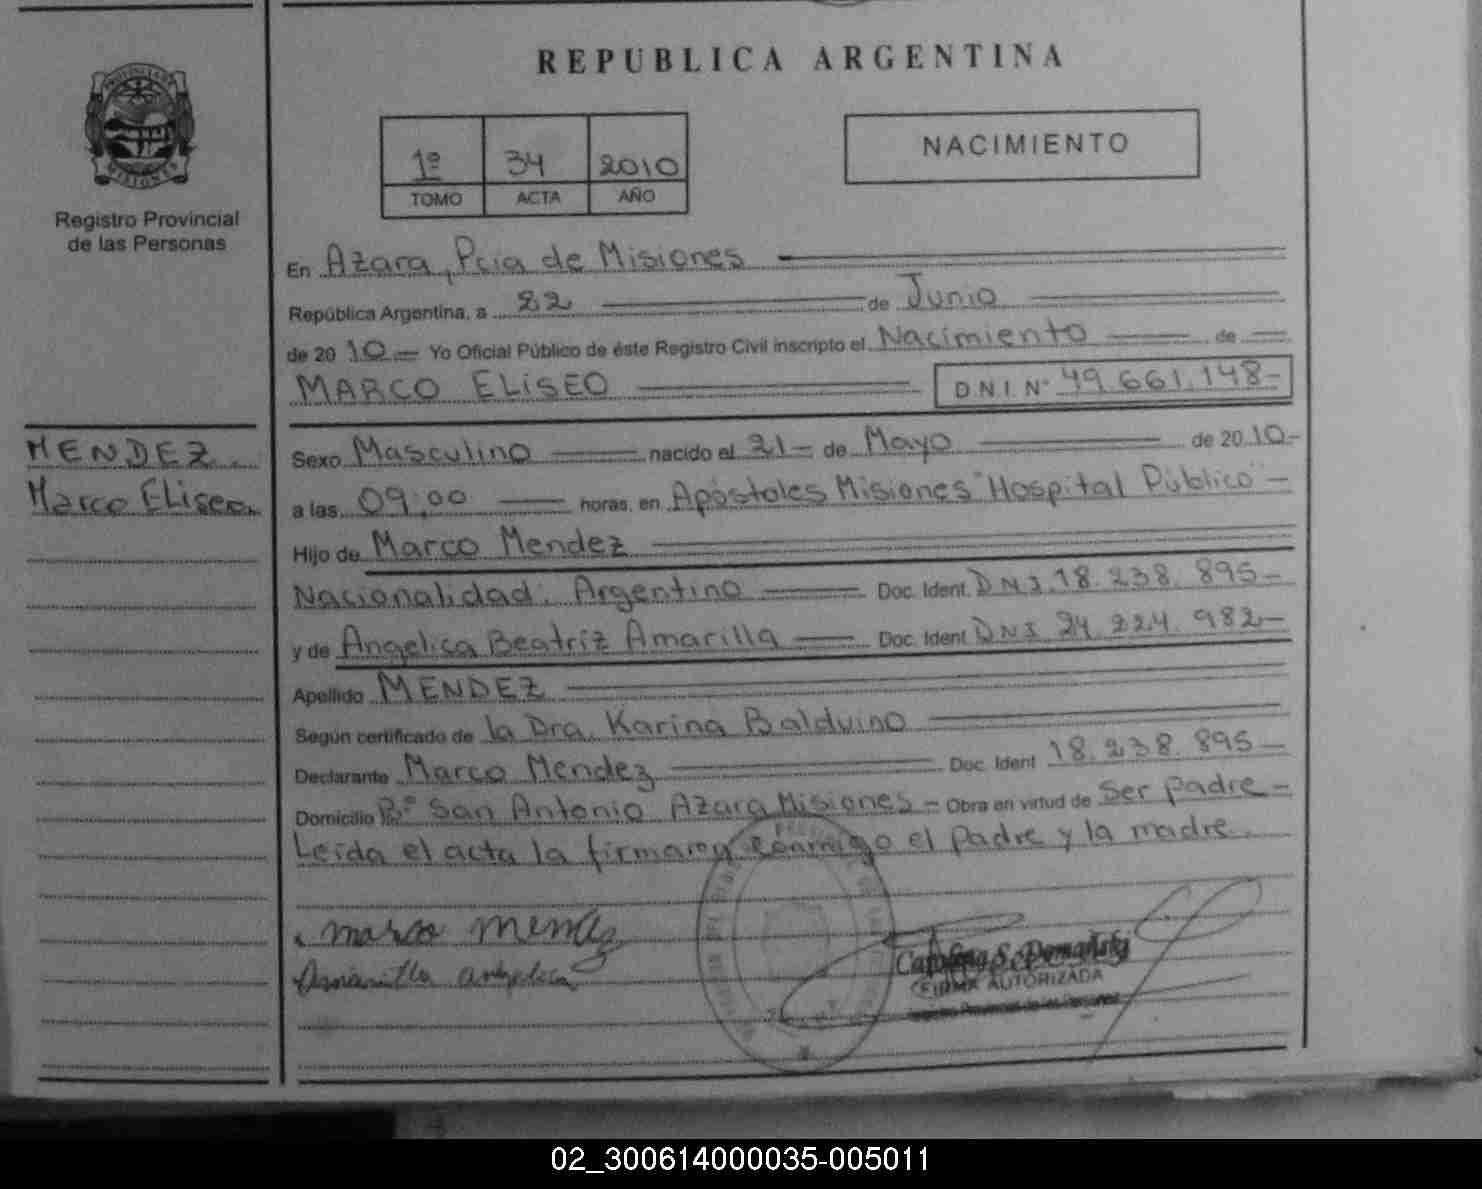 REPUBLICA ARGENTINA
MISIONES
Registro Provincial
de las Personas
1º 34 2010
TOMO ACTA AÑO
NACIMIENTO
En Azara, Pcia de Misiones
República Argentina, a 22 de Junio
de 2010 Yo Oficial Público de éste Registro Civil inscripto el Nacimiento de
MARCO ELISEO D.N.I. Nº 49.661.148-
MENDEZ.
Marco Eliseo.
Sexo Masculino nacido el 21- de Mayo de 2010-
a las 09:00 horas, en Apóstoles Misiones "Hospital Público"-
Hijo de Marco Mendez
Nacionalidad: Argentino Doc. Ident. DNI. 18.238.895-
y de Angelica Beatriz Amarilla Doc. Ident. DNI. 24.224.982-
Apellido MENDEZ
Según certificado de la Dra. Karina Balduino
Declarante Marco Mendez Doc. Ident 18.238.895-
Domicilio Bº San Antonio Azara Misiones- Obra en virtud de Ser padre-
Leída el acta la firmaron conmigo el padre y la madre.
marco mendez
Amarilla angelica
Carolina S. Domański
FIRMA AUTORIZADA
Registro Provincial de las Personas
02_300614000035-005011